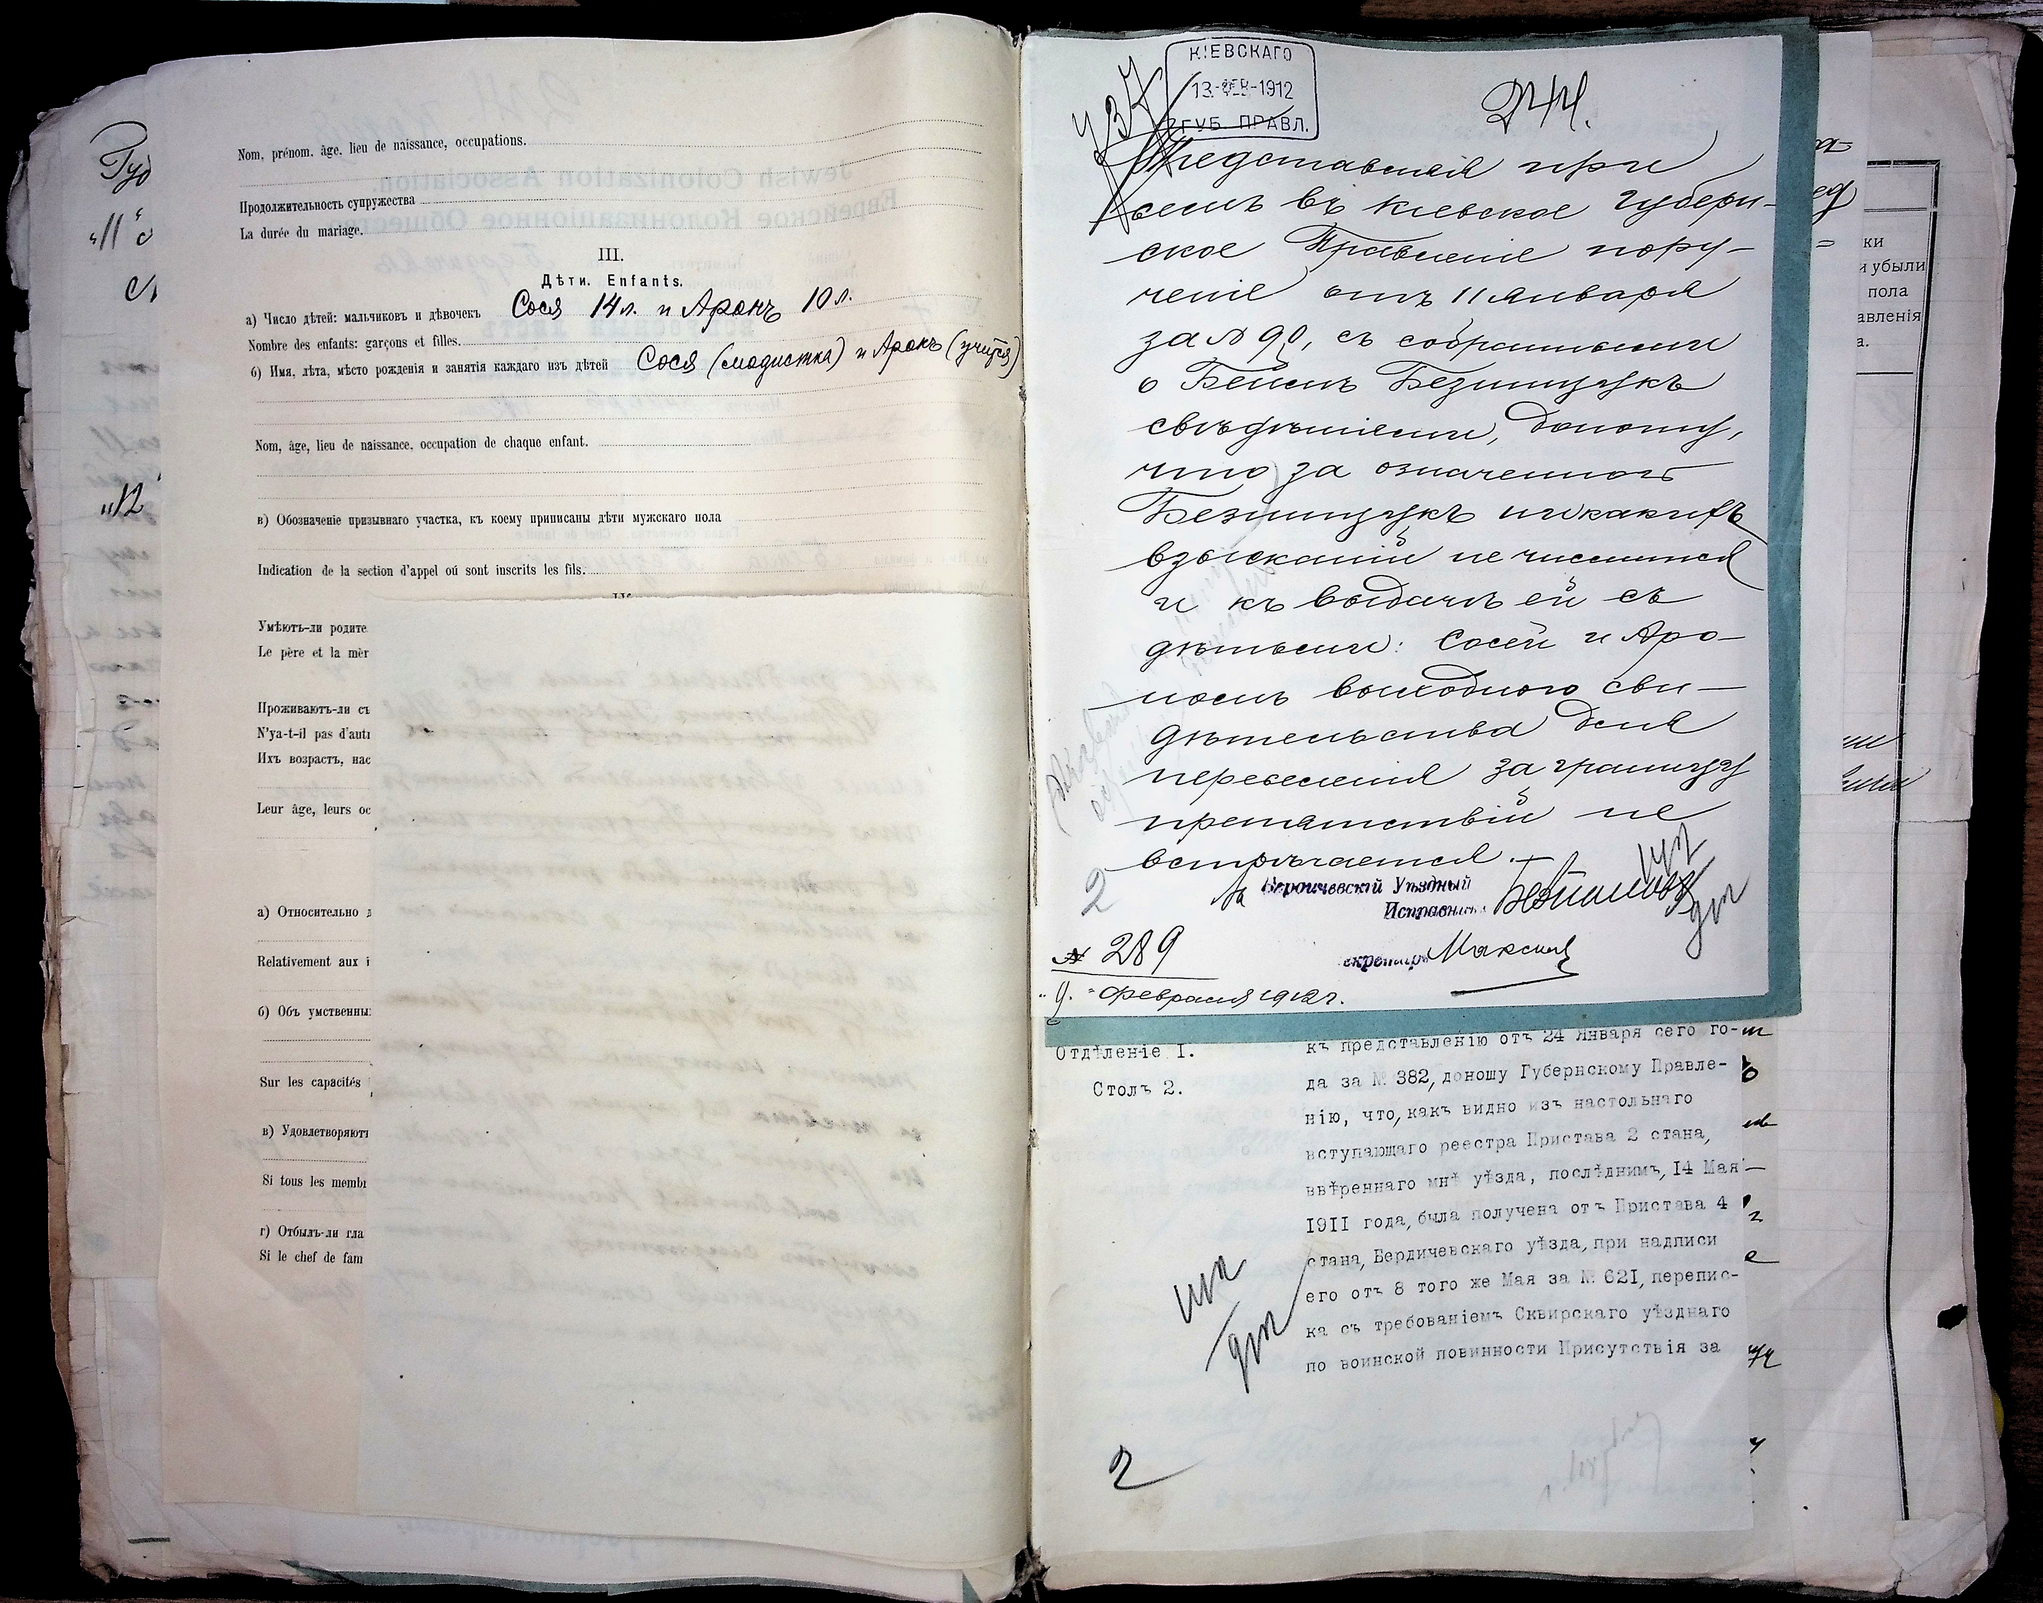 Nom, prénom, âge, lieu de naissance, occupations.
Продолжительность супружества
La durée du mariage.
III.
Дѣти. Enfants.
а) Число дѣтей: мальчиковъ и дѣвочекъ Сося 14 л. и Аронъ 10 л.
Nombre des enfants: garçons et filles.
б) Имя, лѣта, мѣсто рожденія и занятія каждаго изъ дѣтей Сося (модистка) и Аронъ (учится)
Nom, âge, lieu de naissance, occupation de chaque enfant.
в) Обозначеніе призывнаго участка, къ коему приписаны дѣти мужскаго пола
Indication de la section d'appel oú sont inscrits les fils.
Умѣютъ-ли родите
Le père et la mèr
Проживаютъ-ли съ
N'ya-t-il pas d'autr
Ихъ возрастъ, нас
Leur âge, leurs oc
а) Относительно
Relativement aux i
б) Объ умственны
Sur les capacités
в) Удовлетворяют
Si tous les membr
г) Отбылъ-ли гла
Si le chef de fam
"12
КІЕВСКАГО
13 ФЕВ 1912
ГУБ. ПРАВЛ.
437
244.
Представляя при
семъ въ Кіевское Губерн-
ское Правленіе пору-
ченіе отъ 11 Января
за № 90, съ собранными
о Бейлѣ Безпищукъ
свѣдѣніями, доношу,
что за означенной
Безпищукъ никакихъ
взысканій не числится
и къ выдачѣ ей съ
дѣтьми: Сосей и Аро-
номъ выходного сви-
дѣтельства для
переселенія за границу
препятствій не
встрѣчается.
За Бердичевскій Уѣздный
Исправникъ
Секретарь
2
№ 289
"9" Февраля 1912 г.
Отдѣленіе I.
Столъ 2.
къ представленію отъ 24 Января сего го-
да за № 382, доношу Губернскому Правле-
нію, что, какъ видно изъ настольнаго
вступающаго реестра Пристава 2 стана,
ввѣреннаго мнѣ уѣзда, послѣднимъ, 14 Мая
1911 года, была получена отъ Пристава 4
стана, Бердичевскаго уѣзда, при надписи
его отъ 8 того же Мая за № 621, перепис-
ка съ требованіемъ Сквирскаго уѣзднаго
по воинской повинности Присутствія за
2
ки
и убыли
пола
авленія
а.